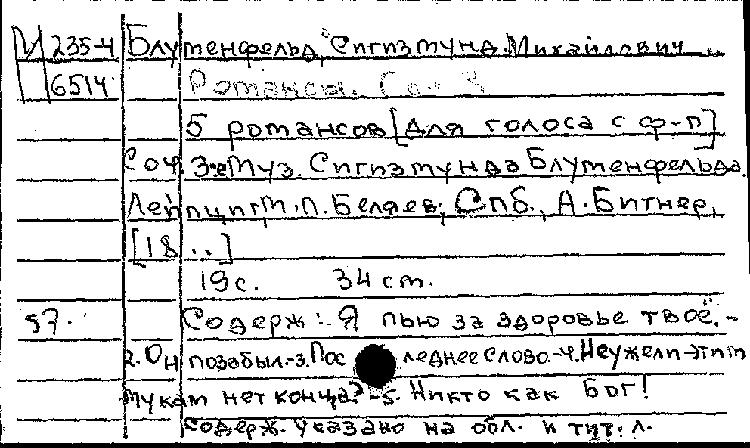 И 235-4 Блуменфельд, Сигизмунд Михайлович
6514 Романсы. Соч. 3
5 романсов [для голоса с ф-п]
Соч. 3-е Муз. Сигизмунда Блуменфельда.
Лейпциг М.П. Беляев; Спб., А. Битнер,
[18 ..]
19 с. 34 cm.
57. Содерж: Я пью за здоровье твоё. -
2. Он позабыл.-3. Последнее слово.-4. Неужели этим
мукам нет конца?-5. Никто как Бог!
Содерж. указано на обл. и тит. л.